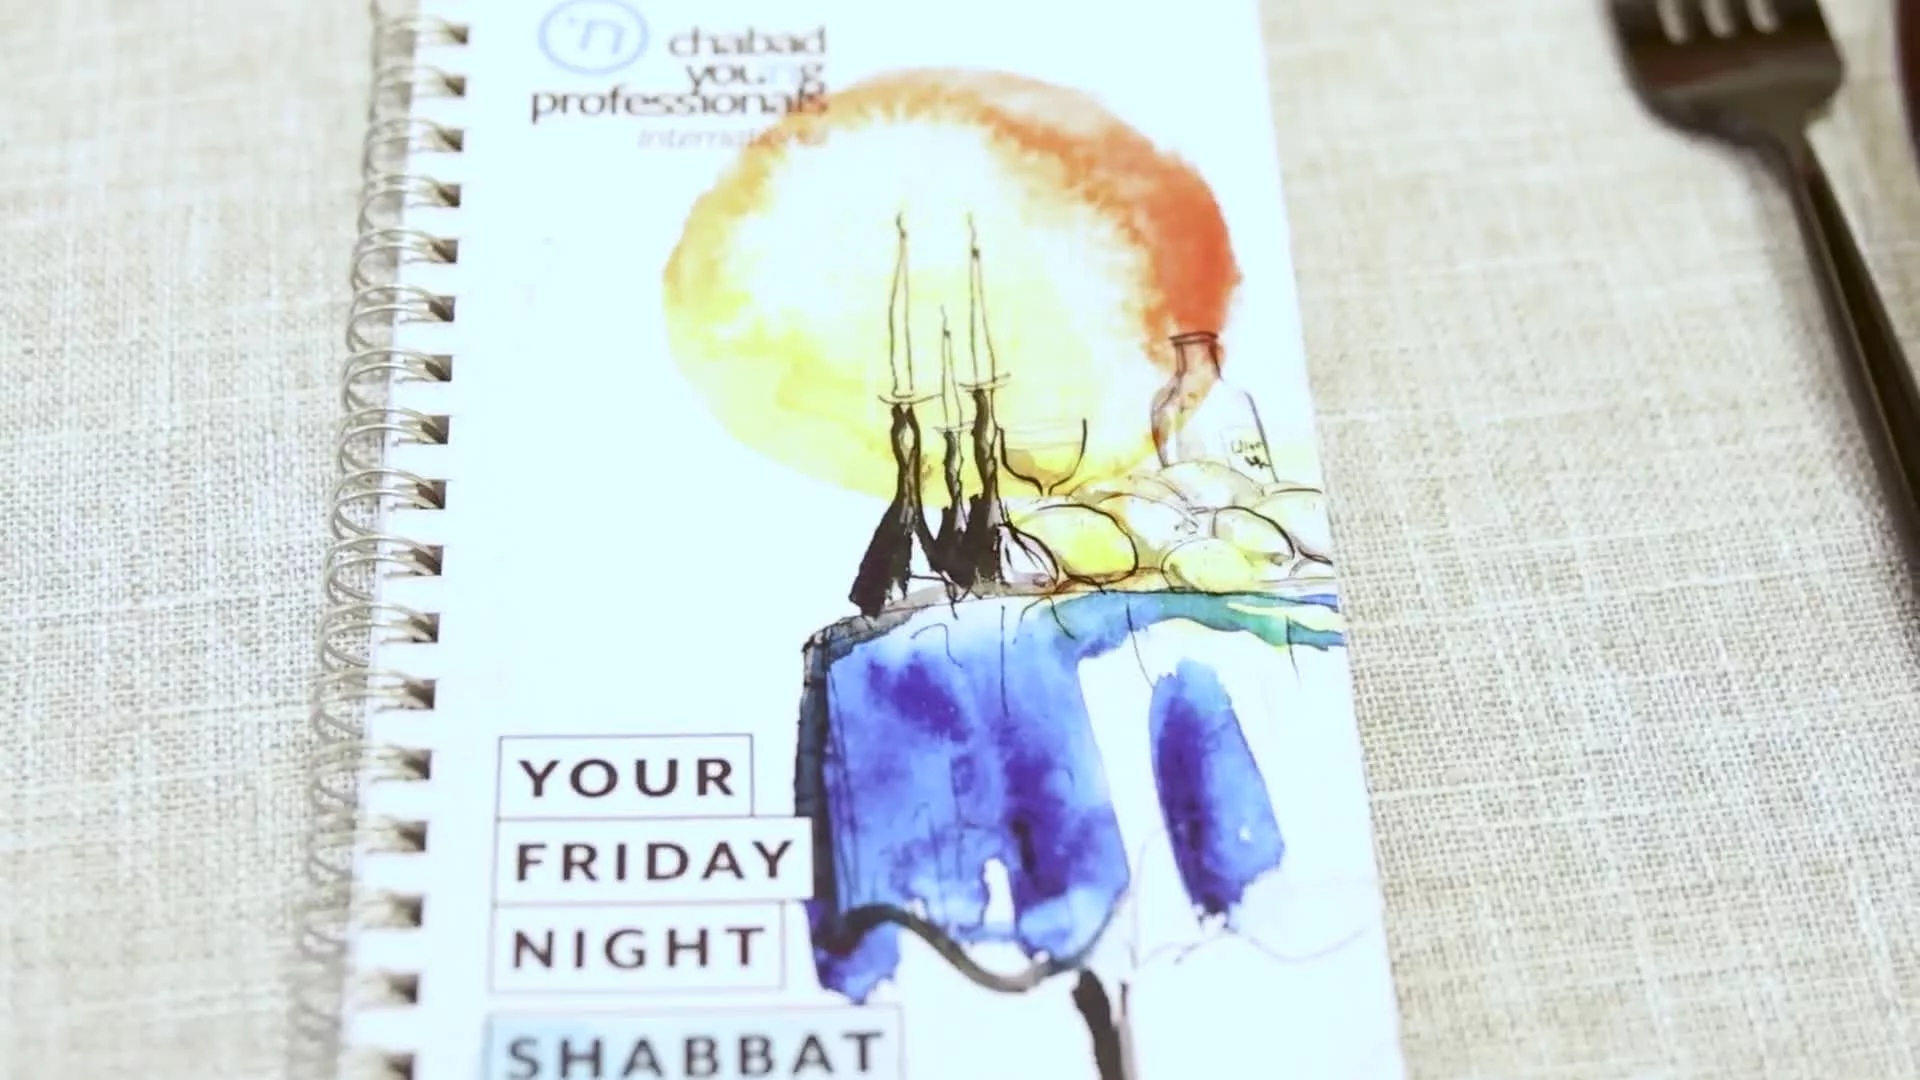 'n
chabad
young
professionals
international
YOUR
FRIDAY
NIGHT
SHABBAT